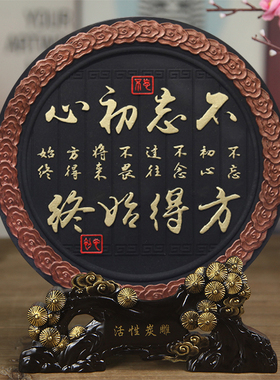 不忘初心
不忘
初心
不念
过往
不畏
将来
方得
始终
方得始终
活性炭雕